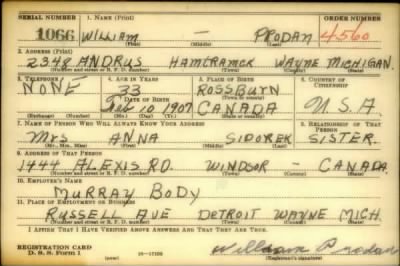 SERIAL NUMBER 1. NAME (Print) ORDER NUMBER
1066 WILLIAM — PRODAN 4560
(First) (Middle) (Last)
2. ADDRESS (Print)
2348 ANDRUS HAMTRAMCK WAYNE MICHIGAN.
(Number and street or R. F. D. number) (Town) (County) (State)
3. TELEPHONE 4. AGE IN YEARS 5. PLACE OF BIRTH 6. COUNTRY OF CITIZENSHIP
NONE 33 ROSSBURN
DATE OF BIRTH (Town or county)
Feb 10 1907 CANADA U.S.A
(Exchange) (Number) (Mo.) (Day) (Yr.) (State or country)
7. NAME OF PERSON WHO WILL ALWAYS KNOW YOUR ADDRESS 8. RELATIONSHIP OF THAT PERSON
Mrs ANNA SIDOREK SISTER.
(Mr., Mrs., Miss) (First) (Middle) (Last)
9. ADDRESS OF THAT PERSON
1444 ALEXIS RD. WINDSOR — CANADA.
(Number and street or R. F. D. number) (Town) (County) (State)
10. EMPLOYER'S NAME
MURRAY BODY
11. PLACE OF EMPLOYMENT OR BUSINESS
RUSSELL AVE DETROIT WAYNE MICH.
(Number and street or R. F. D. number) (Town) (County) (State)
I AFFIRM THAT I HAVE VERIFIED ABOVE ANSWERS AND THAT THEY ARE TRUE.
REGISTRATION CARD
D. S. S. FORM 1 William Prodan
(over) (Registrant's signature)